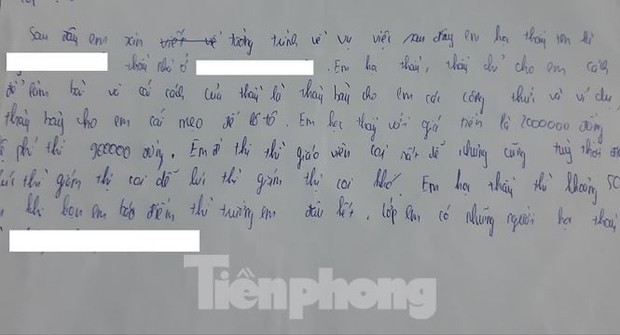 Sau đây em xin viết về tường trình về vụ việc sau đây em học thầy tên là
thầy nhà ở . Em học thầy, thầy chỉ cho em cách
để làm bài và có cách của thầy là thầy bày cho em các công thức và ví dụ,
thầy bày cho em cái mẹo để lô tô. Em học thầy với giá tiền là 2000000 đồng
phí thi 900000 đồng. Em đi thi thì giáo viên coi rất dễ nhưng cũng tuỳ thời điểm
lúc thì giám thị coi dễ lúc thì giám thị coi khó. Em học thầy thì khoảng 50
khi bọn em báo điểm thì trường em đậu hết. lớp em có những người học thầy
Tiềnphong